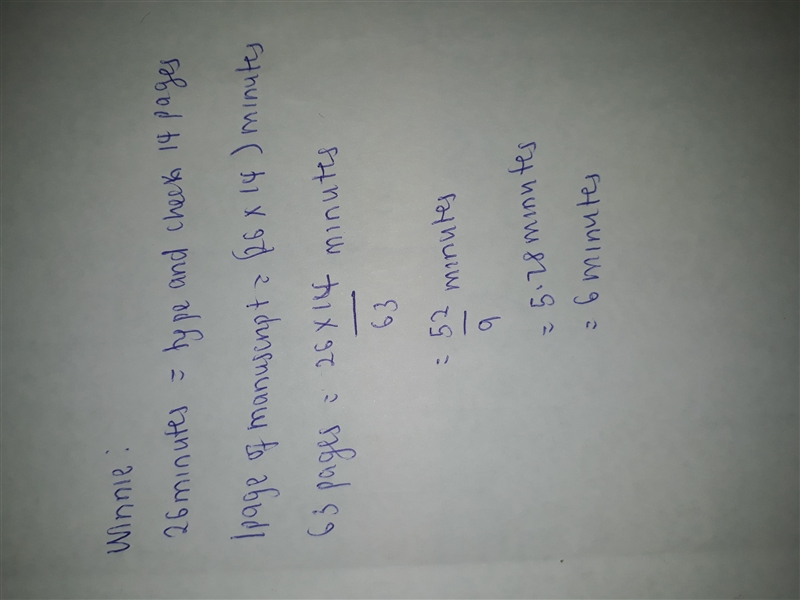 Winnie:
26 minutes = type and check 14 pages
1 page of manuscript = (26 × 14) minutes
63 pages = 26 × 14 minutes
63
= 52 minutes
9
= 5.28 minutes
= 6 minutes